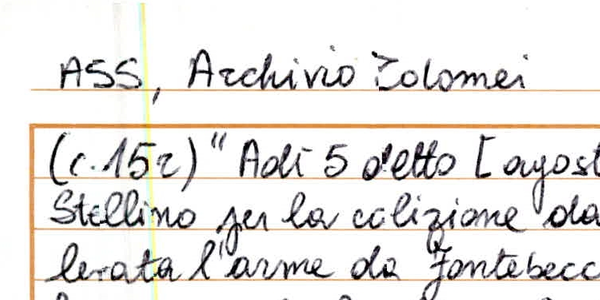 ASS, Archivio Tolomei
(c.15r) "Adì 5 detto [agost
Stellino per la colizione da
lerata l'arme da Fontebecc